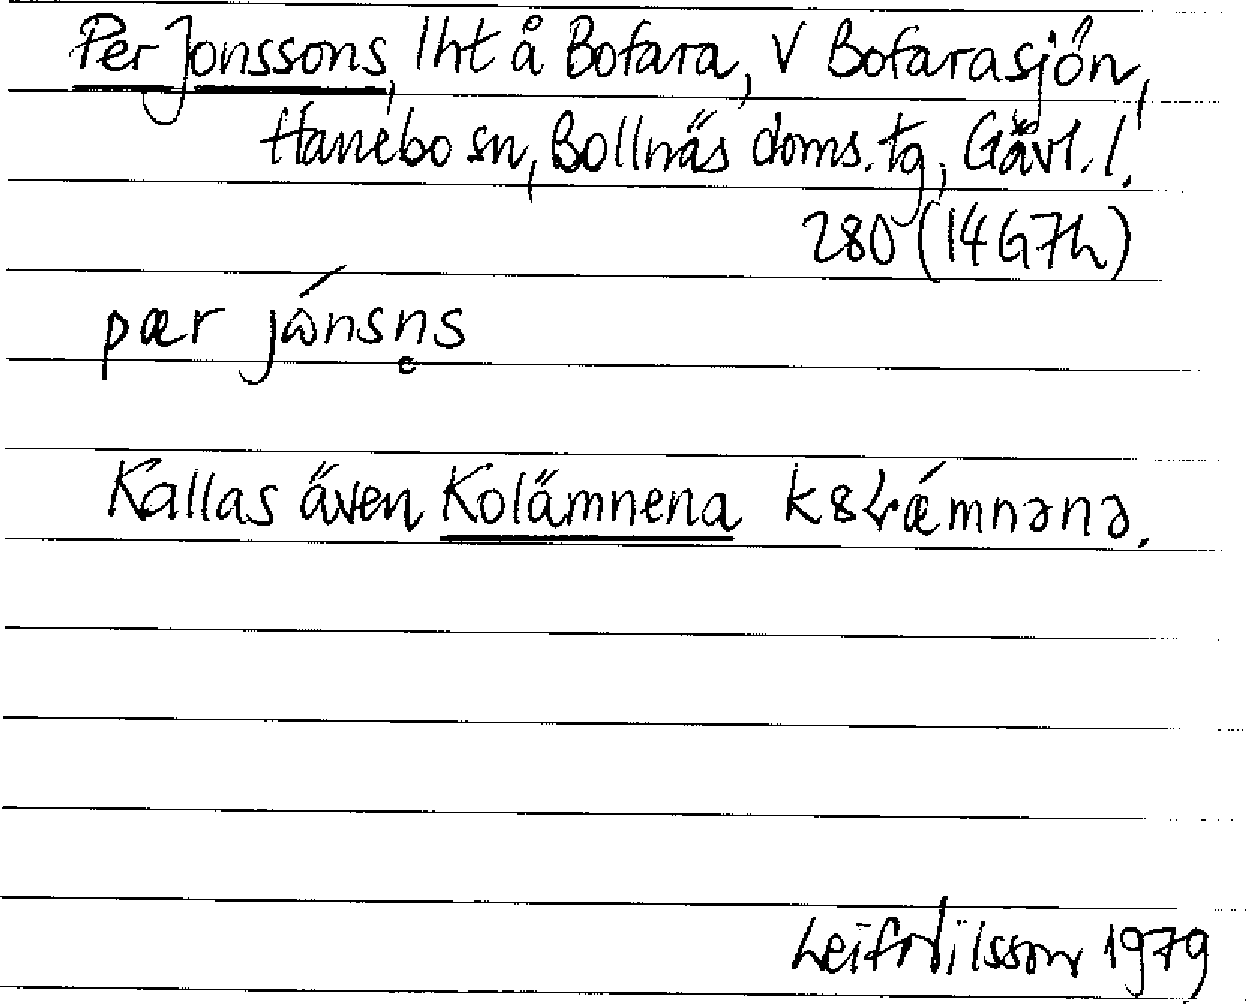 Per Jonssons, lht å Bofara, V Bofarasjön,
Hanebo sn, Bollnäs doms. tg, Gävl. l.
280 (14G7h)
pær jónsn̥s
Kallas även Kolämnena k8Ɫǽmnənə.
Leif Nilsson 1979